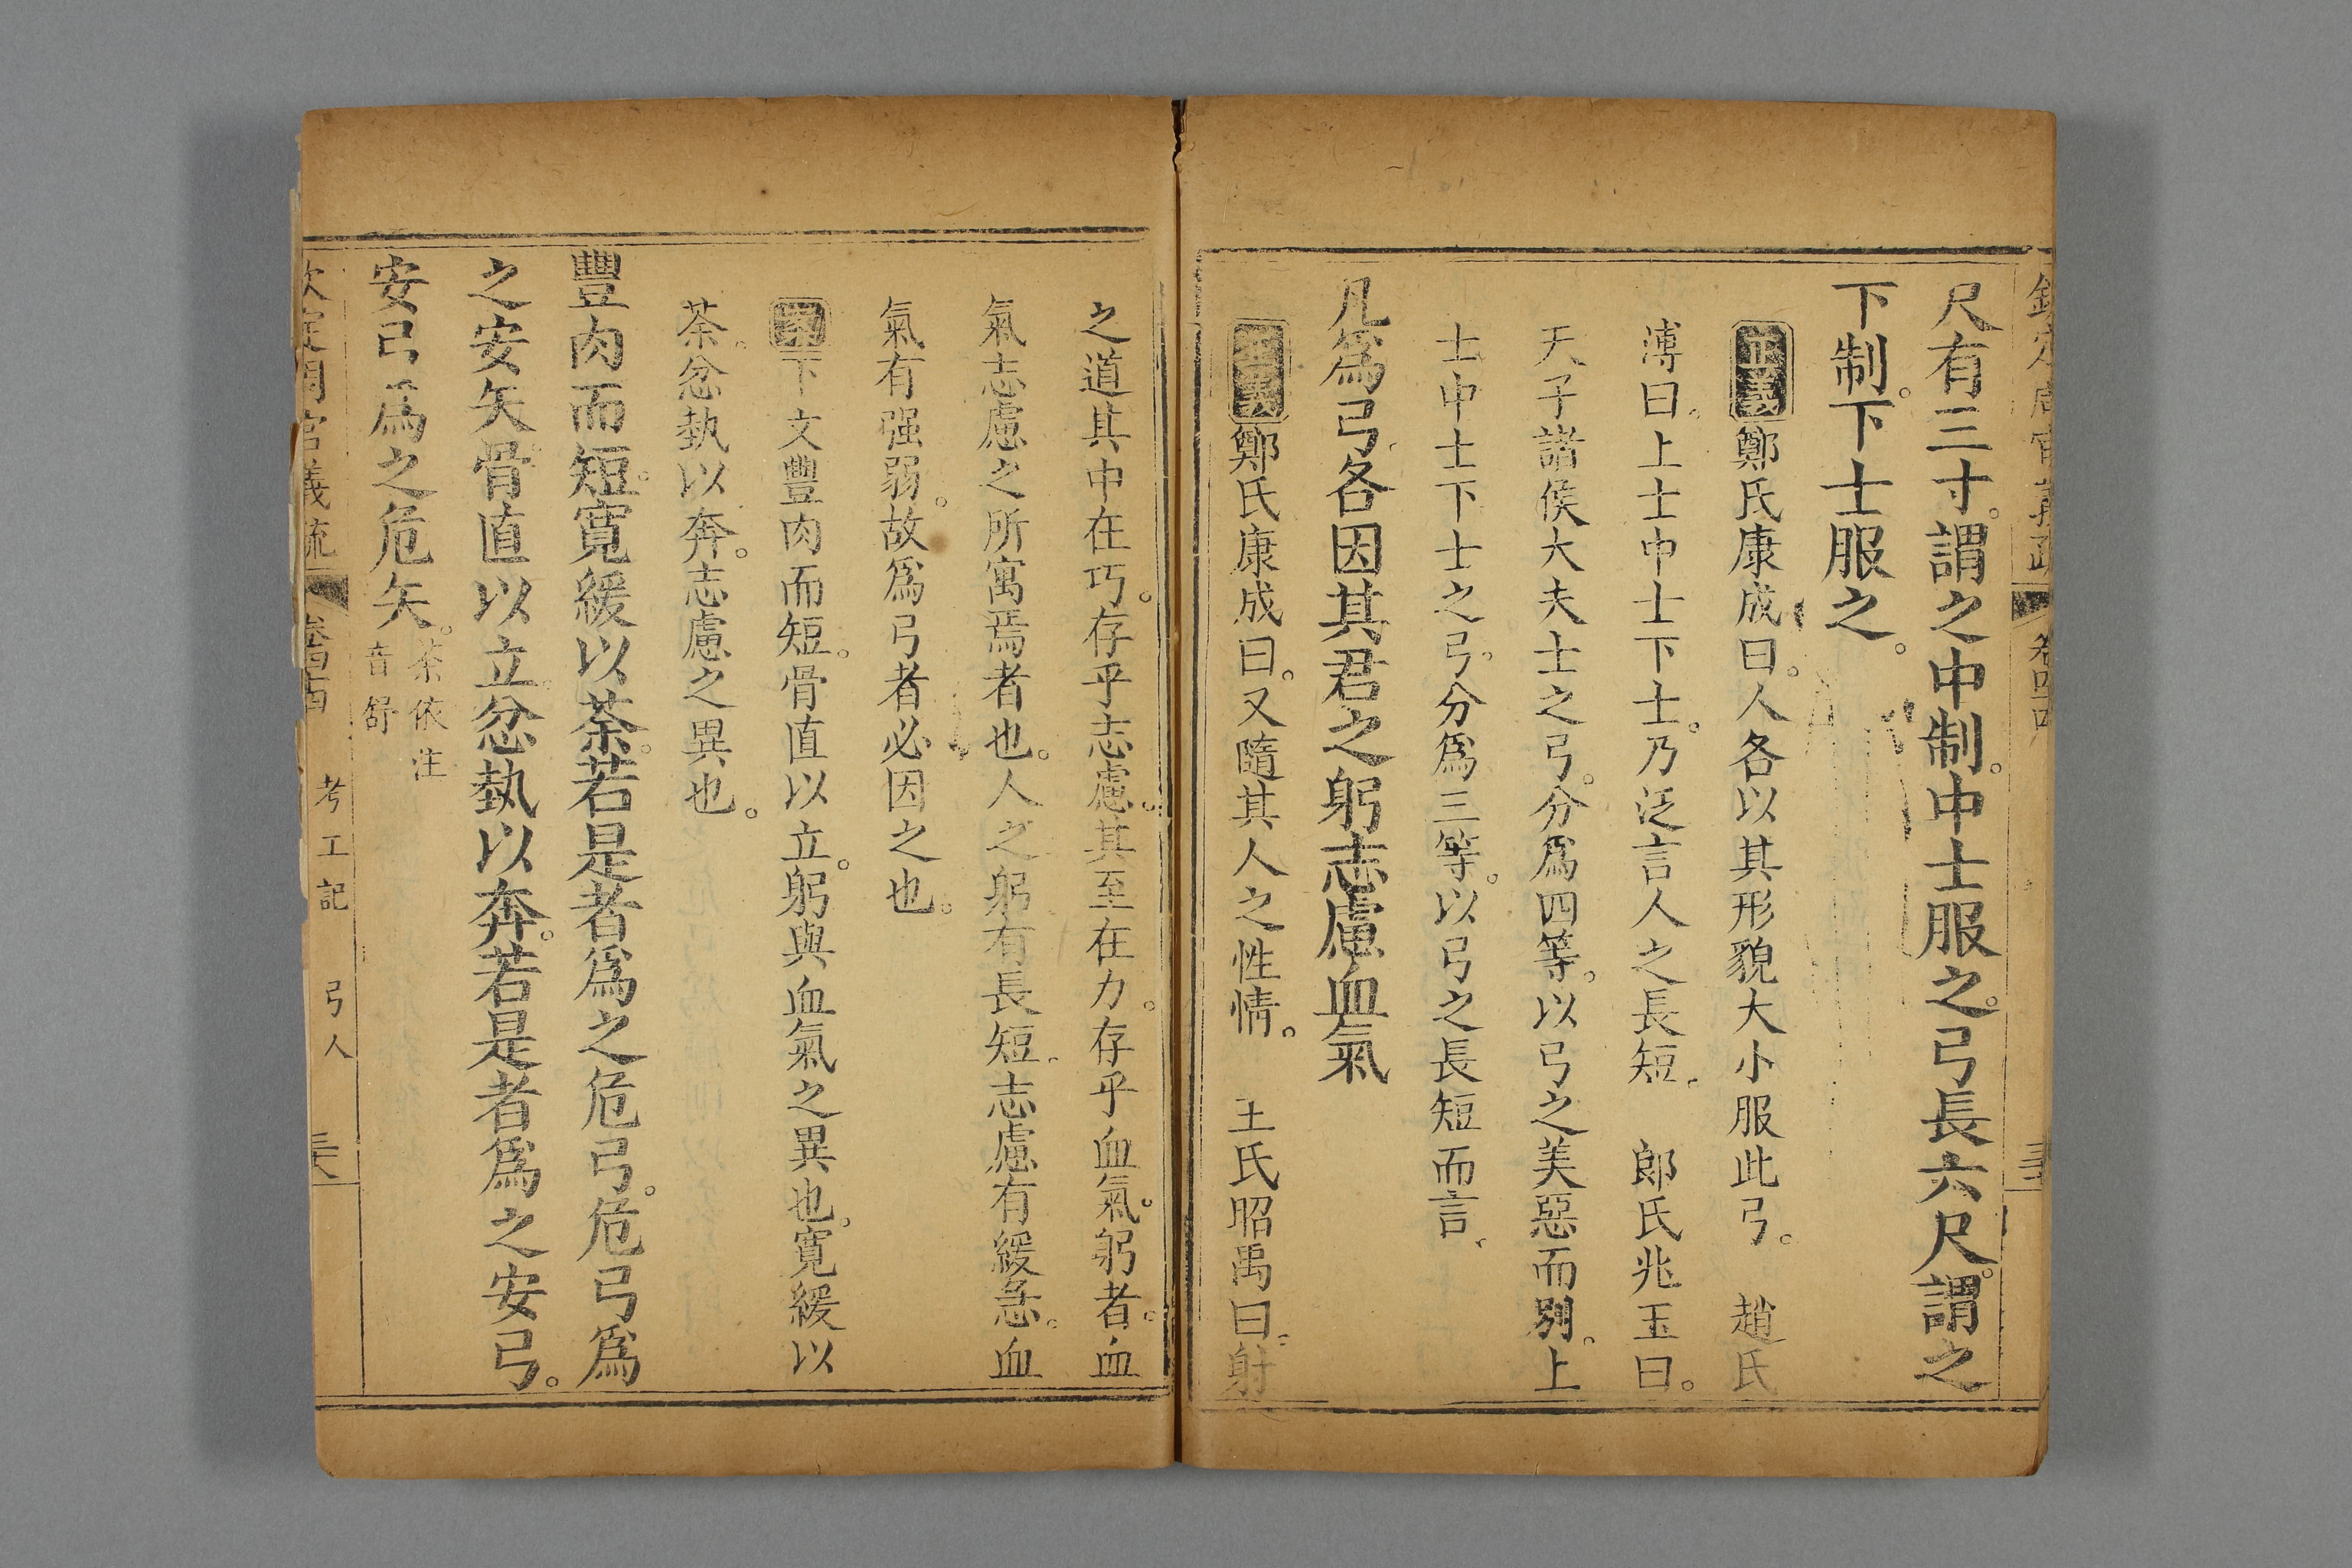 尺有三寸。謂之中制。中士服之。弓長六尺。謂之
下制。下士服之。
正義鄭氏康成曰。人各以其形貌大小服此弓。 趙氏
溥曰。上士中士下士。乃泛言人之長短。 郎氏兆玉曰。
天子諸侯大夫士之弓。分爲四等。以弓之美惡而別。上
士中士下士之弓。分爲三等。以弓之長短而言。
凡爲弓各因其君之躬志慮血氣
正義鄭氏康成曰。又隨其人之性情。 王氏昭禹曰。射
之道其中在巧。存乎志慮。其至在力。存乎血氣。躬者。血
氣志慮之所寓焉者也。人之躬有長短。志慮有緩急。血
氣有强弱。故爲弓者必因之也。
下文豐肉而短。骨直以立。躬與血氣之異也。寛緩以
荼。忿埶以奔。志慮之異也。
豐肉而短。寛緩以荼。若是者爲之危弓。危弓爲
之安矢骨直以立。忿埶以奔。若是者爲之安弓。
安弓爲之危矢。荼依注
音舒
欽定周官義疏 卷四十四 考工記 弓人